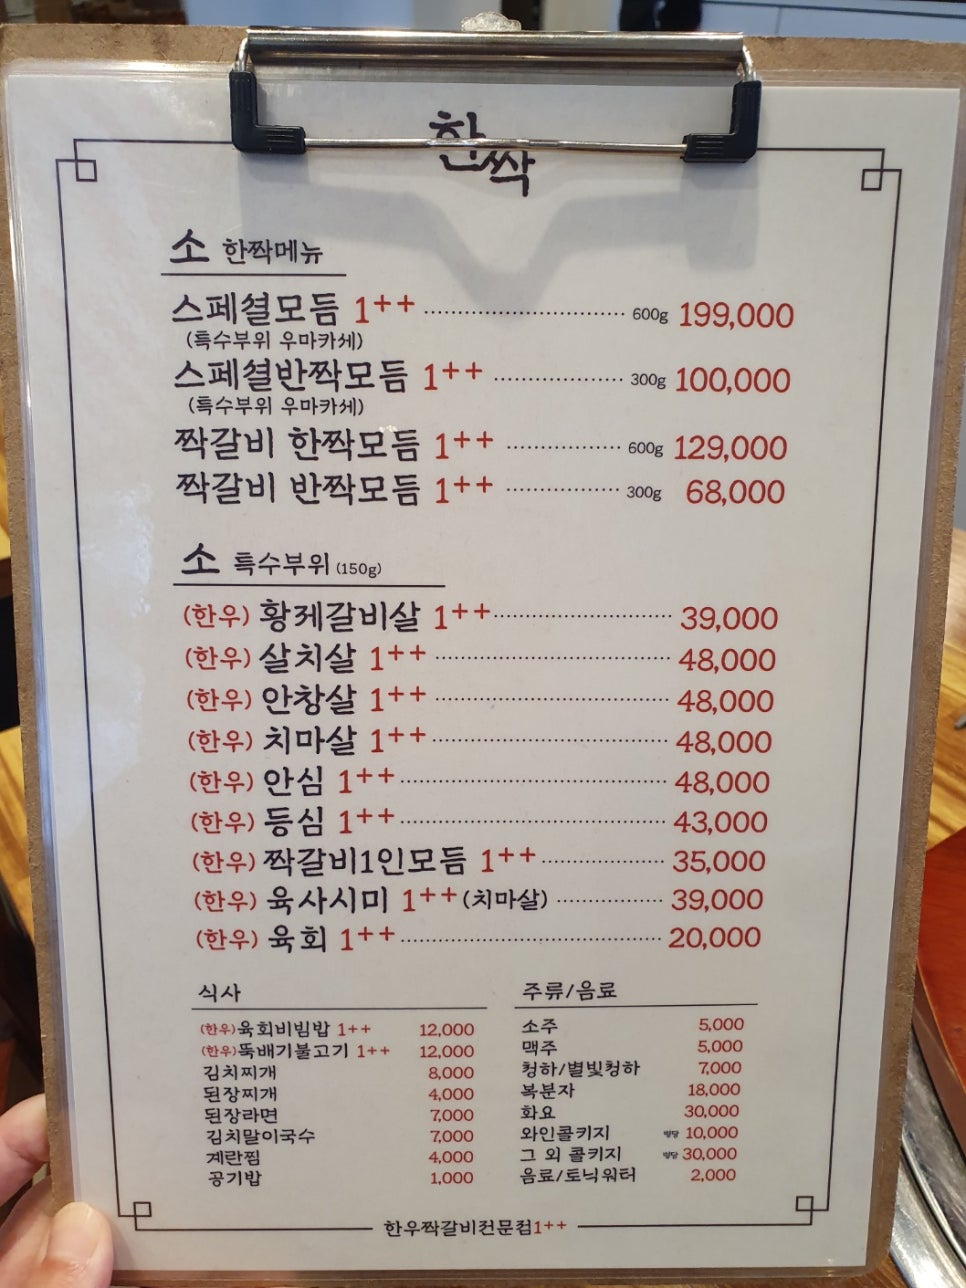 한짝
소 한짝메뉴
스페셜모듬 1++ 600g 199,000
(특수부위 우마카세)
스페셜반짝모듬 1++ 300g 100,000
(특수부위 우마카세)
짝갈비 한짝모듬 1++ 600g 129,000
짝갈비 반짝모듬 1++ 300g 68,000
소 특수부위 (150g)
(한우) 황제갈비살 1++ 39,000
(한우) 살치살 1++ 48,000
(한우) 안창살 1++ 48,000
(한우) 치마살 1++ 48,000
(한우) 안심 1++ 48,000
(한우) 등심 1++ 43,000
(한우) 짝갈비1인모듬 1++ 35,000
(한우) 육사시미 1++ (치마살) 39,000
(한우) 육회 1++ 20,000
식사
(한우)육회비빔밥 1++ 12,000
(한우)뚝배기불고기 1++ 12,000
김치찌개 8,000
된장찌개 4,000
된장라면 7,000
김치말이국수 7,000
계란찜 4,000
공기밥 1,000
주류/음료
소주 5,000
맥주 5,000
청하/별빛청하 7,000
복분자 18,000
화요 30,000
와인콜키지 병당 10,000
그 외 콜키지 병당 30,000
음료/토닉워터 2,000
한우짝갈비전문점1++